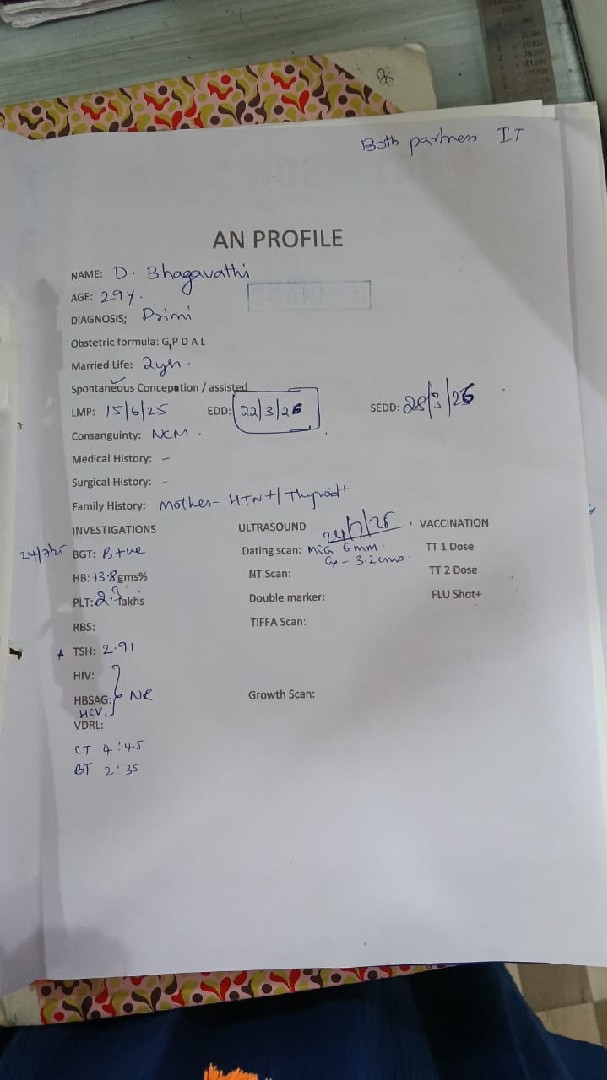 86
Both partners IT
AN PROFILE
NAME: D. Bhagavathi
AGE: 29y.
DIAGNOSIS: Primi
Obstetric formula: G P D A L
Married Life: 2yrs.
Spontaneous Conception / assisted
LMP: 15/6/25 EDD: 22/3/26 SEDD: 28/3/26
Consanguinty: NCM.
Medical History: -
Surgical History: -
Family History: Mother - HTN+/Thyroid+
INVESTIGATIONS ULTRASOUND 24/7/25. VACCINATION
24/7/25 BGT: B+ve Dating scan: 6mm TT 1 Dose
Cx - 3.2cms
HB: 13.8gms% NT Scan: TT 2 Dose
PLT: lakhs Double marker: FLU Shot+
RBS: TIFFA Scan:
TSH: 2.91
HIV:
HBSAG: NR Growth Scan:
HCV
VDRL:
CT 4:45
BT 2:35